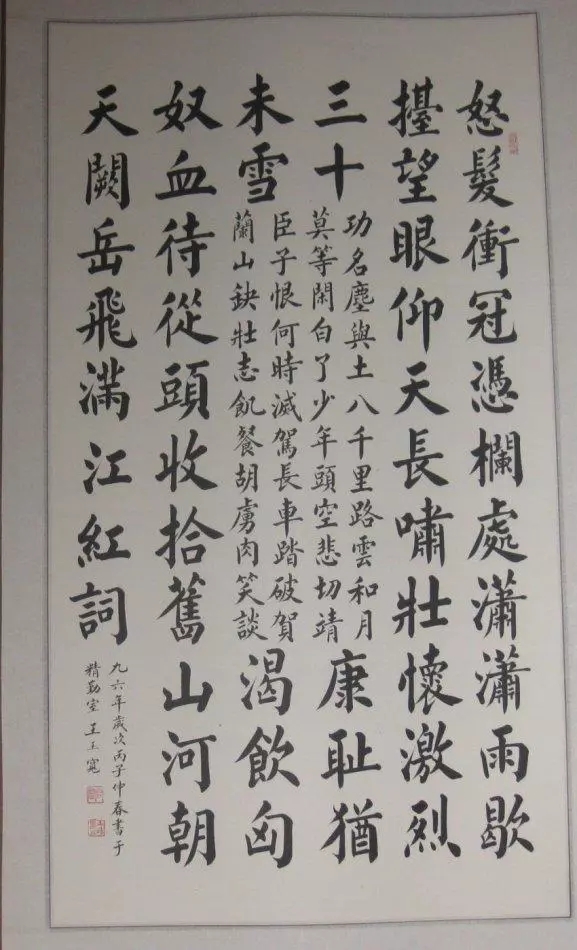 怒髮衝冠憑欄處瀟瀟雨歇
擡望眼仰天長嘯壯懷激烈
三十
功名塵與土八千里路雲和月
莫等閑白了少年頭空悲切靖
康耻猶
未雪
臣子恨何時滅駕長車踏破賀
蘭山缺壯志飢餐胡虜肉笑談
渴飲匈
奴血待從頭收拾舊山河朝
天闕岳飛滿江紅詞
九六年歲次丙子仲春書于
精勤室王